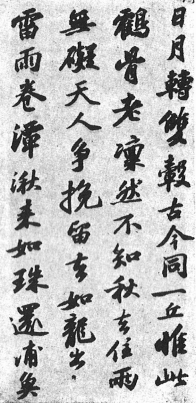 日月轉雙轂古今同一丘惟此
鶴骨老凜然不知秋去住兩
無礙天人爭挽留去如龍出
雷雨卷潭湫来如珠還浦魚